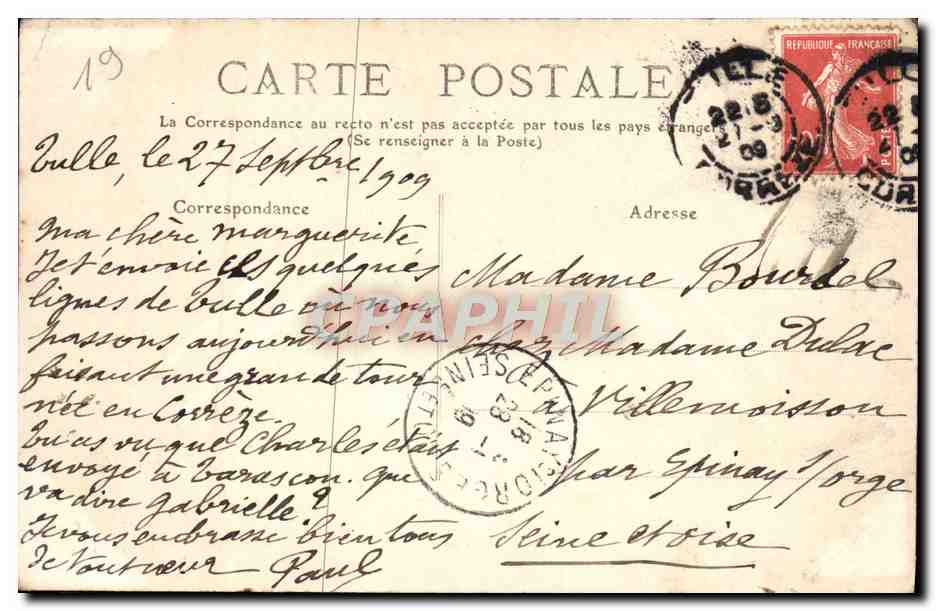 19
CARTE POSTALE
La Correspondance au recto n'est pas acceptée par tous les pays étrangers
(Se renseigner à la Poste)
REPUBLIQUE FRANÇAISE
POSTES
22 5
27-9
09
CORREZE
Tulle, le 27 Septbre 1909
Correspondance
Ma chère Marguerite
Je t'envoie ces quelques
lignes de Tulle où nous
passons aujourd'hui en
faisant une grande tour
née en Corrèze.
Tu as vu que Charles était
envoyé à Tarascon. que
va dire Gabrielle?
Je vous embrasse bien tous
de tout cœur Paul
Adresse
Madame Bourdel
chez Madame Dulac
à Villemoisson
par Epinay s/orge
Seine et oise
EPINAY-S-ORGE
SEINE-ET-OISE
18
28
CPAPHIL